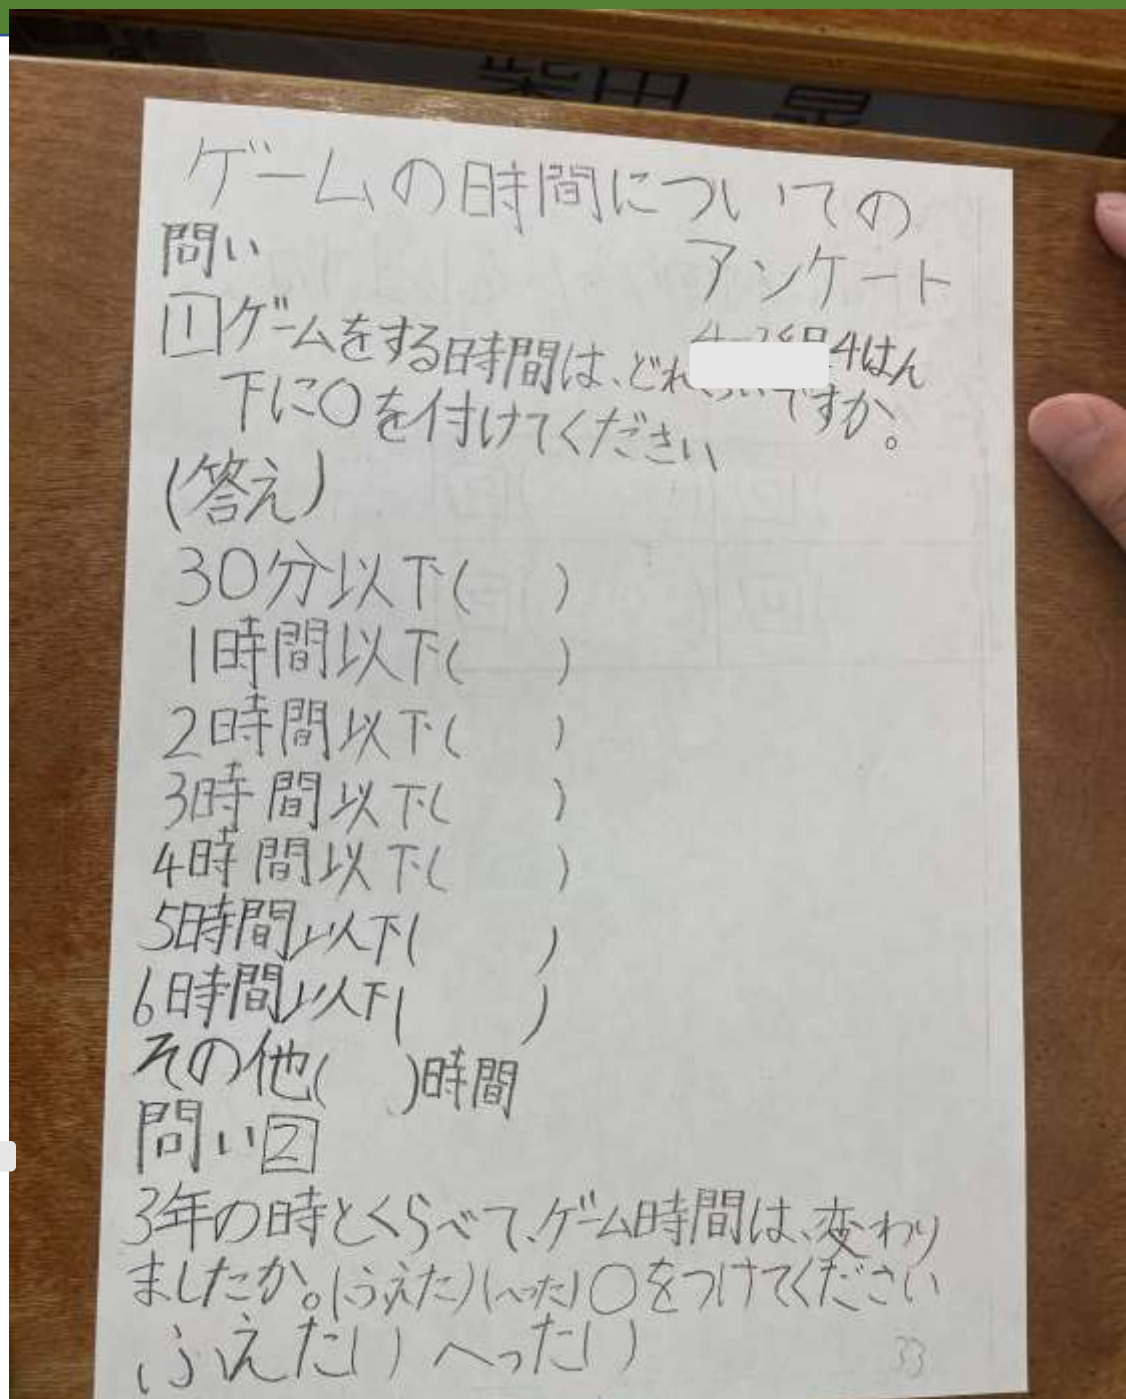 柴田
ゲームの時間についての
アンケート
問い
4はん
1 ゲームをする時間は、どれくらいですか。
下に○を付けてください
(答え)
30分以下( )
1時間以下( )
2時間以下( )
3時間以下( )
4時間以下( )
5時間以下( )
6時間以下( )
その他( )時間
問い2
3年の時とくらべて、ゲーム時間は、変わり
ましたか。(ふえた)(へった)○をつけてください
ふえた( ) へった( )
33